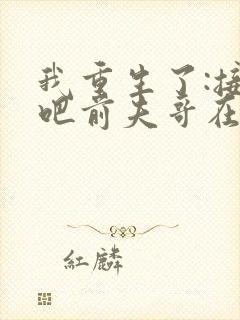 我重生了:接
吧前夫哥在
红麟